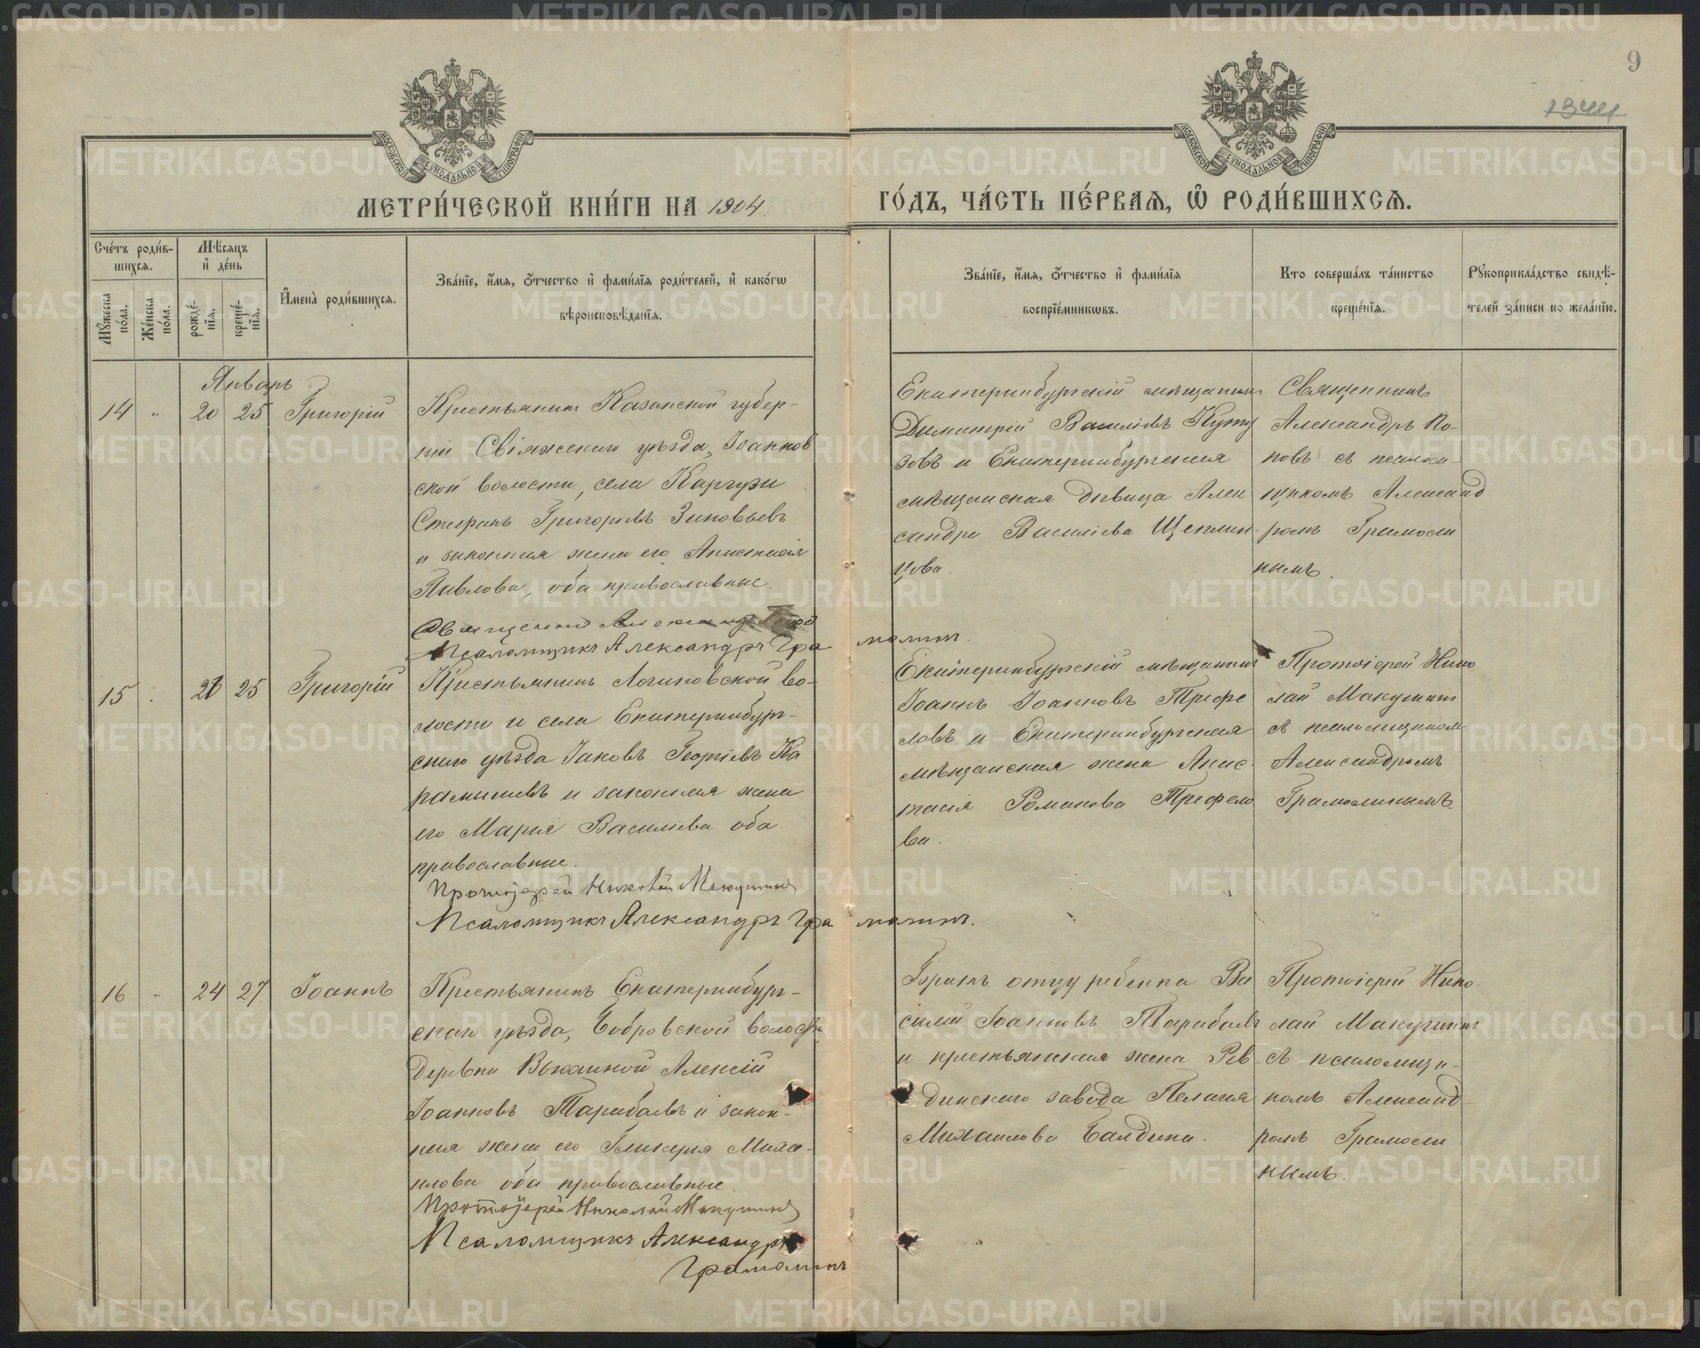 9
1344
МЕТРИ́ЧЕСКОЙ КНИ́ГИ НА 1904
ГО́ДЪ, ЧА́СТЬ ПЕ́РВАѦ, Ѽ РОДИ́ВШИХСѦ.
Сче́тъ роди́вшихсѧ.
Мꙋ́жеска по́ла.
Же́нска по́ла.
Мѣ́сѧцъ и҆ де́нь
рожде́нїѧ.
креще́нїѧ.
И҆мена̀ роди́вшихсѧ.
Зва́нїе, и҆́мѧ, ѻ҆́тчество и҆ фами́лїѧ роди́телей, и҆ како́гѡ
вѣроисповѣ́данїѧ.
Зва́нїе, и҆́мѧ, ѻ҆́тчество и҆ фами́лїѧ
воспрїе́мникѡвъ.
Кто соверша́лъ та́инство
креще́нїѧ.
Рꙋкоприкла́дство свидѣ́-
телей за́писи по жела́нїю.
Январь
14 " 20 25 Григорій
Крестьянинъ Казанской губер-
ніи Свіяжскаго уѣзда, Іоаннов
ской волости, села Каргузи
Стефанъ Григорьевъ Зиновьевъ
и законная жена его Анастасія
Павлова, оба православные.
Священникъ Александръ Поповъ
Псаломщикъ Александръ Гра молинъ.
Екатеринбургскій мѣщанинъ
Димитрій Василіевъ Куту
зовъ и Екатеринбургская
мѣщанская дѣвица Алек
сандра Василіева Щеплец-
цова.
Священникъ
Александръ По-
повъ съ псалом-
щикомъ Александ
ромъ Грамоли
нымъ.
15 25 Григорій
Крестьянинъ Логиновской во-
лости и села Екатеринбург-
скаго уѣзда Іаковъ Георгіевъ Ка
рамышевъ и законная жена
его Марія Василіева оба
православные.
Протоіерей Николай Макушинъ
Псаломщикъ Александръ Гра молинъ.
Екатеринбургскій мѣщанинъ
Іоаннъ Іоанновъ Трефе
ловъ и Екатеринбургская
мѣщанская жена Анас-
тасія Романова Трефело
ва.
Протоіерей Нико
лай Макушинъ
съ псаломщикомъ
Александромъ
Грамолинымъ.
16 " 24 27 Іоаннъ
Крестьянинъ Екатеринбург-
скаго уѣзда, Бобровской волости
деревни Вьюхиной Алексій
Іоанновъ Тарабаевъ и закон-
ная жена его Гликерія Миха-
илова оба православные.
Протоіерей Николай Макушинъ
Псаломщикъ Александръ
Грамолинъ
Братъ отцу ребенка Ва
силій Іоанновъ Тарабаевъ
и крестьянская жена Рев
динскаго завода Пелагія
Михаилова Балдина.
Протоіерей Нико-
лай Макушинъ
съ псаломщи-
комъ Александ-
ромъ Грамоли
нымъ.
METRIKI.GASO-URAL.RU